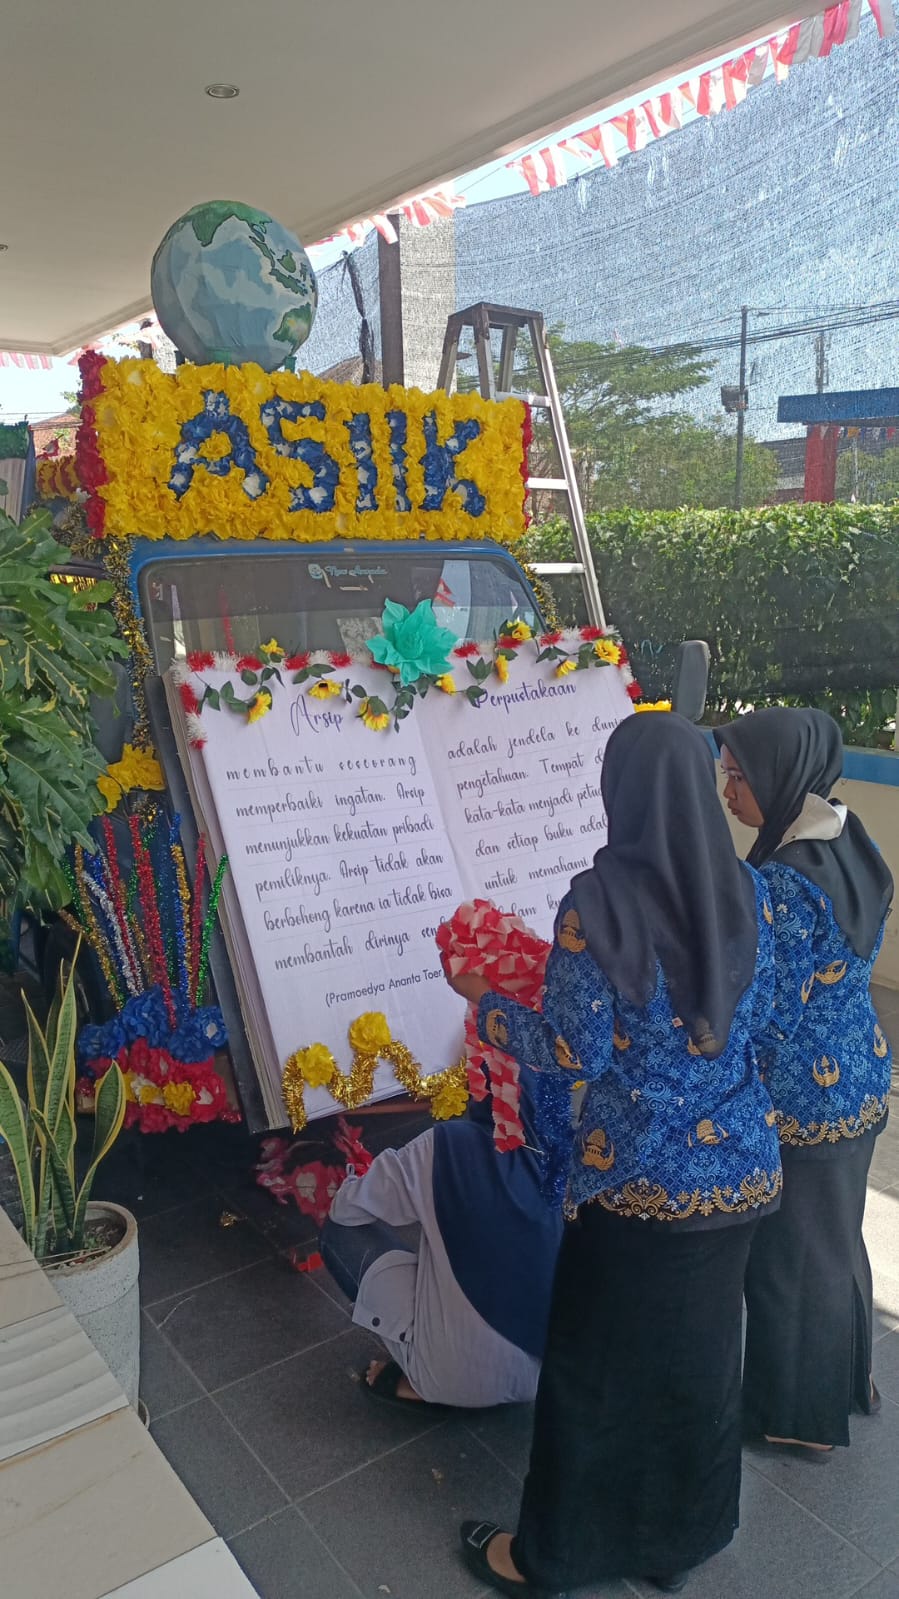 ASIIK
New Armada
Arsip
membantu seseorang
memperbaiki ingatan. Arsip
menunjukkan kekuatan pribadi
pemiliknya. Arsip tidak akan
berbohong karena ia tidak bisa
membantah dirinya
(Pramoedya Ananta Toer
Perpustakaan
adalah jendela ke
pengetahuan. Tempat
kata-kata menjadi
dan setiap buku
untuk memahami